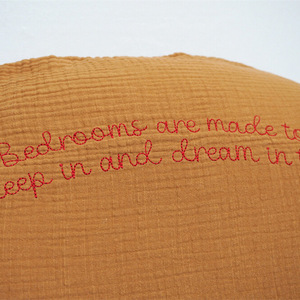 Bedrooms are made to
eep in and dream in